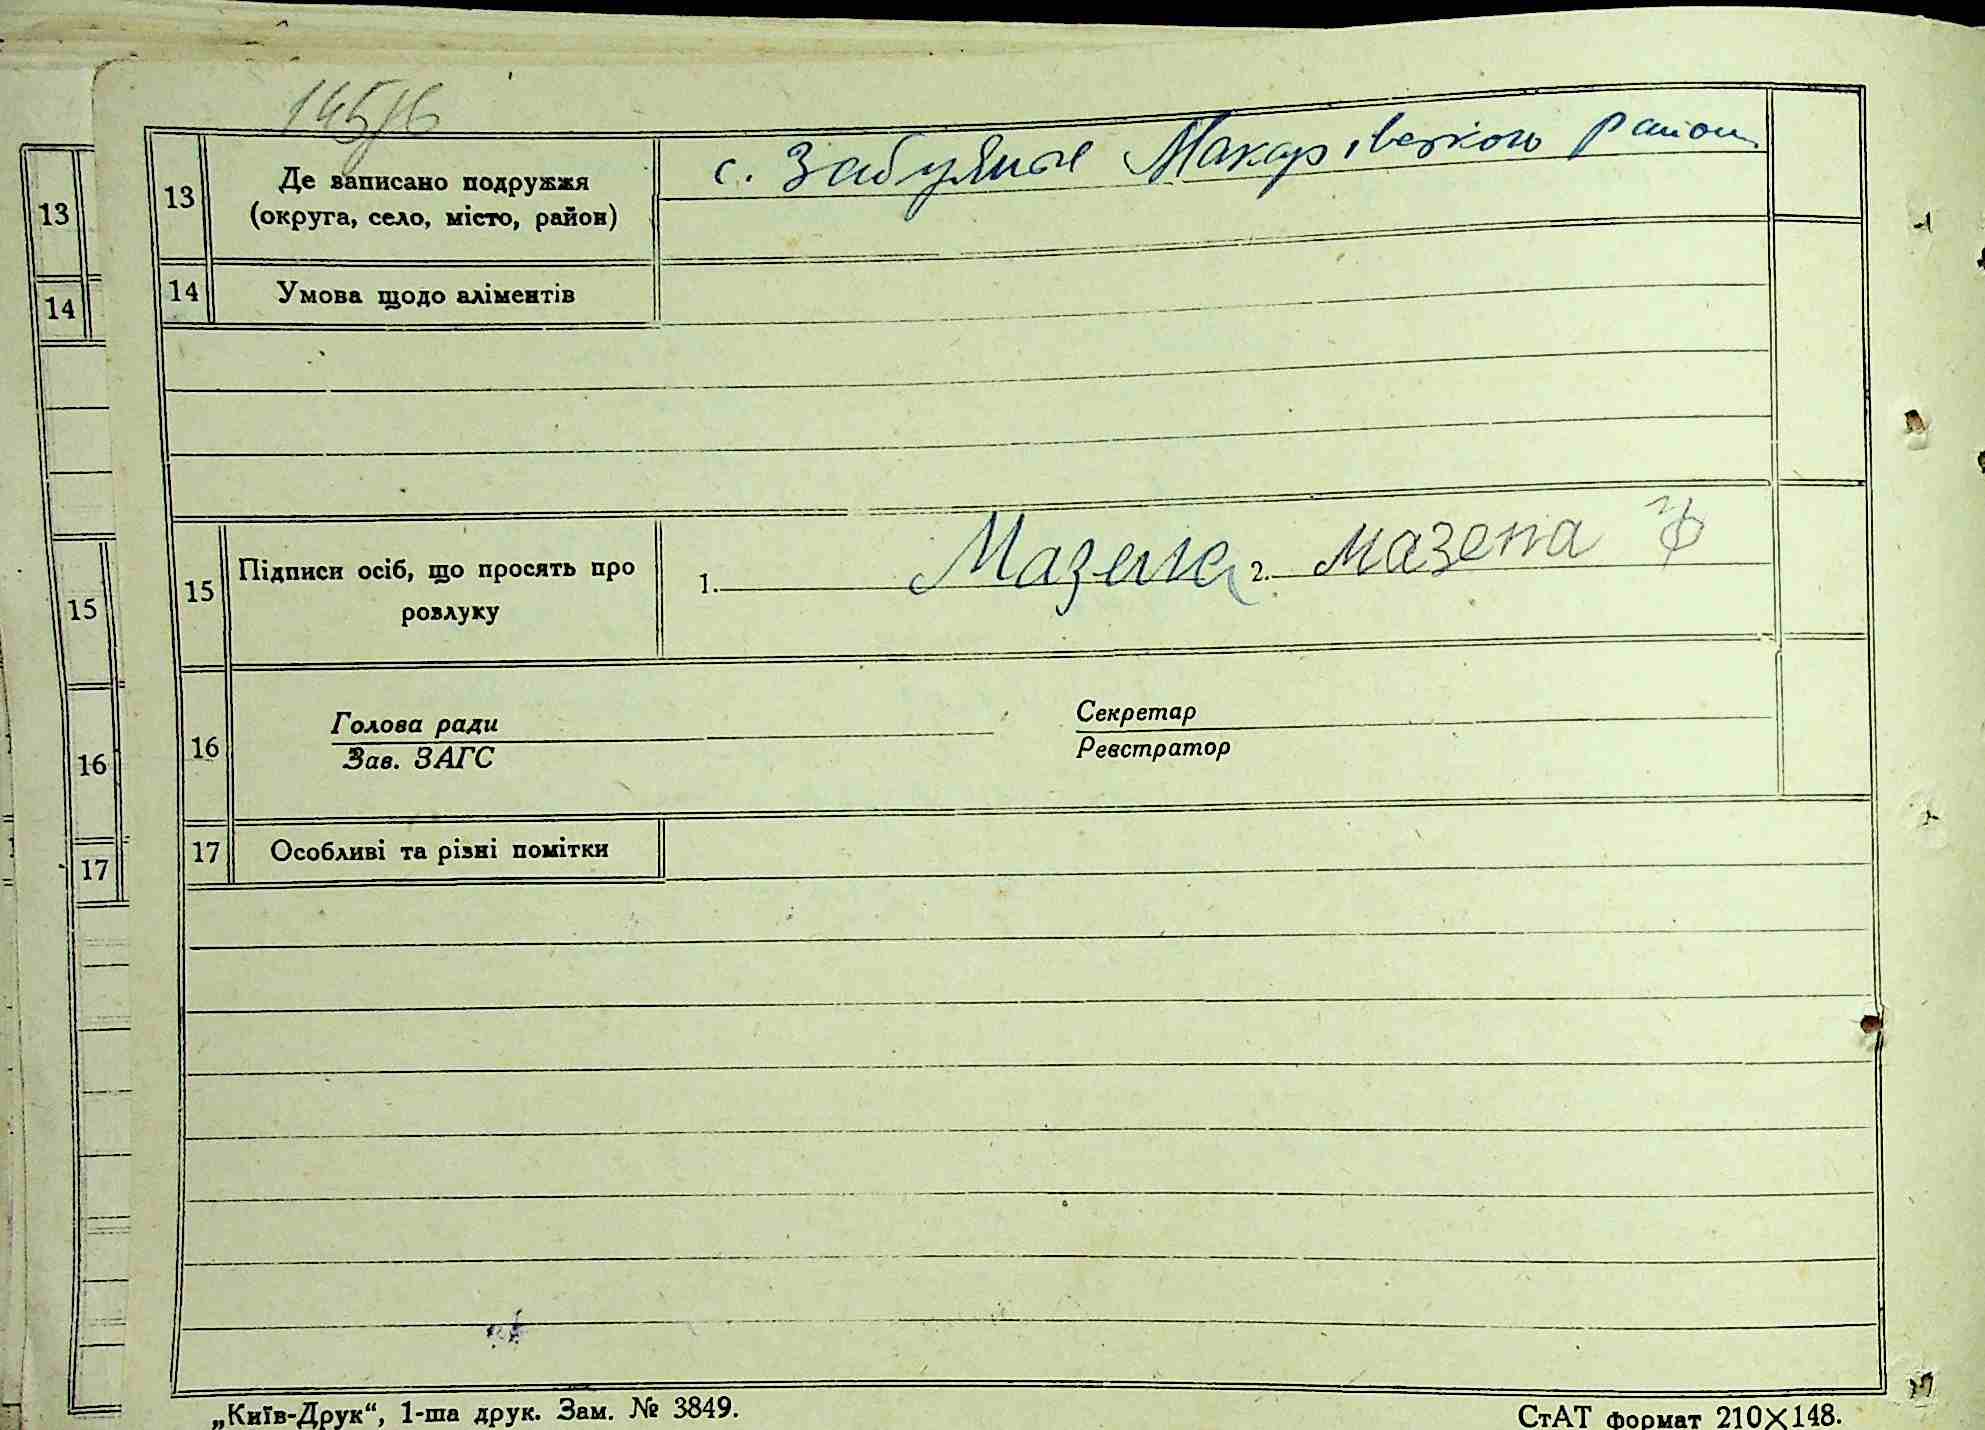 13
14
15
16
17
13
Де записано подружжя
(округа, село, місто, район)
с. Забуяння Макарівського району
14
Умова щодо аліментів
15
Підписи осіб, що просять про
розлуку
1. Мазепа 2. Мазепа
16
Голова ради
Зав. ЗАГС
Секретар
Реєстратор
17
Особливі та різні помітки
„Київ-Друк“, 1-ша друк. Зам. № 3849.
СтАТ формат 210×148.